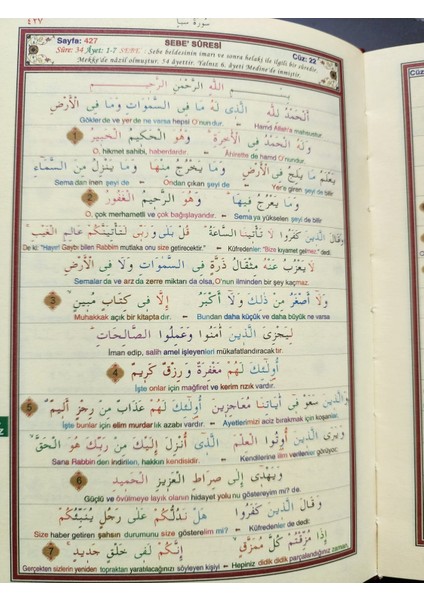 ٤٢٧ سورة سبا
Sayfa: 427 SEBE' SÛRESİ Cüz: 22
Sûre: 34 Âyet: 1-7 SEBE': Sebe beldesinin imarı ve sonra helaki ile ilgili bir sûredir.
Mekke'de nâzil olmuştur. 54 âyettir. Yalnız 6. âyeti Medine'de inmiştir.
بِسْمِ اللّٰهِ الرَّحْمٰنِ الرَّحِيمِ
اَلْحَمْدُ لِلّٰهِ الَّذِى لَهُ مَا فِى السَّمٰوَاتِ وَمَا فِى الْاَرْضِ
Gökler'de ve yer'de ne varsa hepsi O'nundur. Hamd Allah'a mahsustur.
وَلَهُ الْحَمْدُ فِى الْاٰخِرَةِ وَهُوَ الْحَكِيمُ الْخَبِيرُ 1
O, hikmet sahibi, haberdardır. Âhirette de hamd O'nundur.
يَعْلَمُ مَا يَلِجُ فِى الْاَرْضِ وَمَا يَخْرُجُ مِنْهَا وَمَا يَنْزِلُ مِنَ السَّمَاءِ
Sema'dan inen şeyi de Ondan çıkan şeyi de Yer'e giren şeyi de bilir
وَمَا يَعْرُجُ فِيهَا وَهُوَ الرَّحِيمُ الْغَفُورُ 2
O, çok merhametli ve çok bağışlayandır. Sema'ya yükselen şeyi de bilir
وَقَالَ الَّذِينَ كَفَرُوا لَا تَأْتِينَا السَّاعَةُ قُلْ بَلٰى وَرَبِّى لَتَأْتِيَنَّكُمْ عَالِمِ الْغَيْبِ
De ki: "Hayır! Gaybı bilen Rabbim mutlaka onu size getirecektir." Küfredenler: "Bize kıyamet gelmez." dedi
لَا يَعْزُبُ عَنْهُ مِثْقَالُ ذَرَّةٍ فِى السَّمٰوَاتِ وَلَا فِى الْاَرْضِ
Semalar'da ve arz'da zerre miktarı da olsa, O'nun ilminden bir şey kaçmaz.
وَلَا اَصْغَرُ مِنْ ذٰلِكَ وَلَا اَكْبَرُ اِلَّا فِى كِتَابٍ مُبِينٍ 3
Muhakkak açık bir kitapta dır. Bundan daha küçük ve daha büyük ne varsa
لِيَجْزِىَ الَّذِينَ اٰمَنُوا وَعَمِلُوا الصَّالِحَاتِ
İman edip, salih amel işleyenleri mükafatlandıracaktır.
اُولٰئِكَ لَهُمْ مَغْفِرَةٌ وَرِزْقٌ كَرِيمٌ 4
İşte onlar için mağfiret ve kerim rızık vardır.
وَالَّذِينَ سَعَوْ فِى اٰيَاتِنَا مُعَاجِزِينَ اُولٰئِكَ لَهُمْ عَذَابٌ مِنْ رِجْزٍ اَلِيمٌ 5
İşte bunlar için elim murdar lık azabı vardır. Ayetlerimizi aciz bırakmak için koşanlar,
وَيَرَى الَّذِينَ اُوتُوا الْعِلْمَ الَّذِى اُنْزِلَ اِلَيْكَ مِنْ رَبِّكَ هُوَ الْحَقَّ
Sana Rabbin'den indirilen, hakkın kendisidir. Kendilerine ilim verilenler görüyor;
وَيَهْدِى اِلٰى صِرَاطِ الْعَزِيزِ الْحَمِيدِ 6
Güçlü ve övülmeye layık olanın hidayet yolu nu göstereyim mi? da.
وَقَالَ الَّذِينَ كَفَرُوا هَلْ نَدُلُّكُمْ عَلٰى رَجُلٍ يُنَبِّئُكُمْ
Size haber getiren şahsın durumunu size göstereyim mi? Küfredenler de dedi:
اِذَا مُزِّقْتُمْ كُلَّ مُمَزَّقٍ اِنَّكُمْ لَفِى خَلْقٍ جَدِيدٍ 7
Gerçekten sizlerin yeniden topraktan yaratılacağınızı söyleyen kişiyi Hepiniz didik didik parçalandığınız zaman,